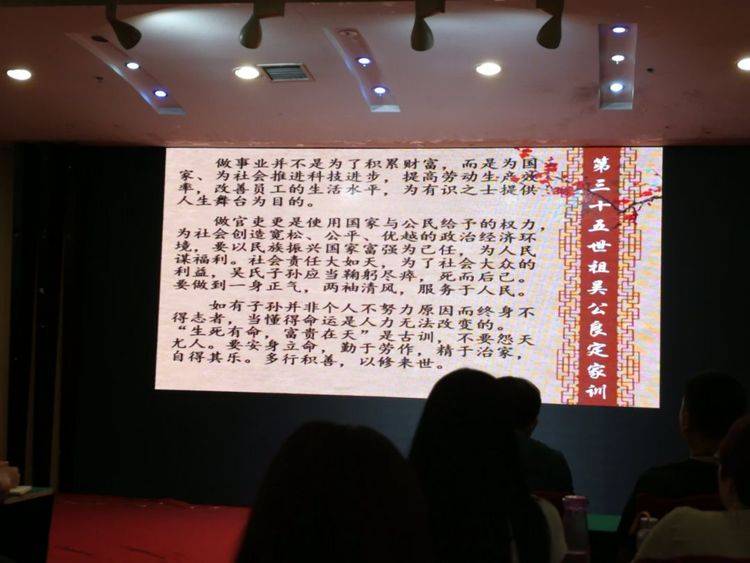 第三十五世祖吴公良定家训
做事业并不是为了积累财富，而是为国
家、为社会推进科技进步，提高劳动生产效
率，改善员工的生活水平，为有识之士提供
人生舞台为目的。
做官吏更是使用国家与公民给予的权力，
为社会创造宽松、公平、优越的政治经济环
境，要以民族振兴国家富强为己任，为人民
谋福利。社会责任大如天，为了社会大众的
利益，吴氏子孙应当鞠躬尽瘁，死而后已。
要做到一身正气，两袖清风，服务于人民。
如有子孙并非个人不努力原因而终身不
得志者，当懂得命运是人力无法改变的。
“生死有命，富贵在天”是古训，不要怨天
尤人。要安身立命，勤于劳作，精于治家，
自得其乐。多行积善，以修来世。